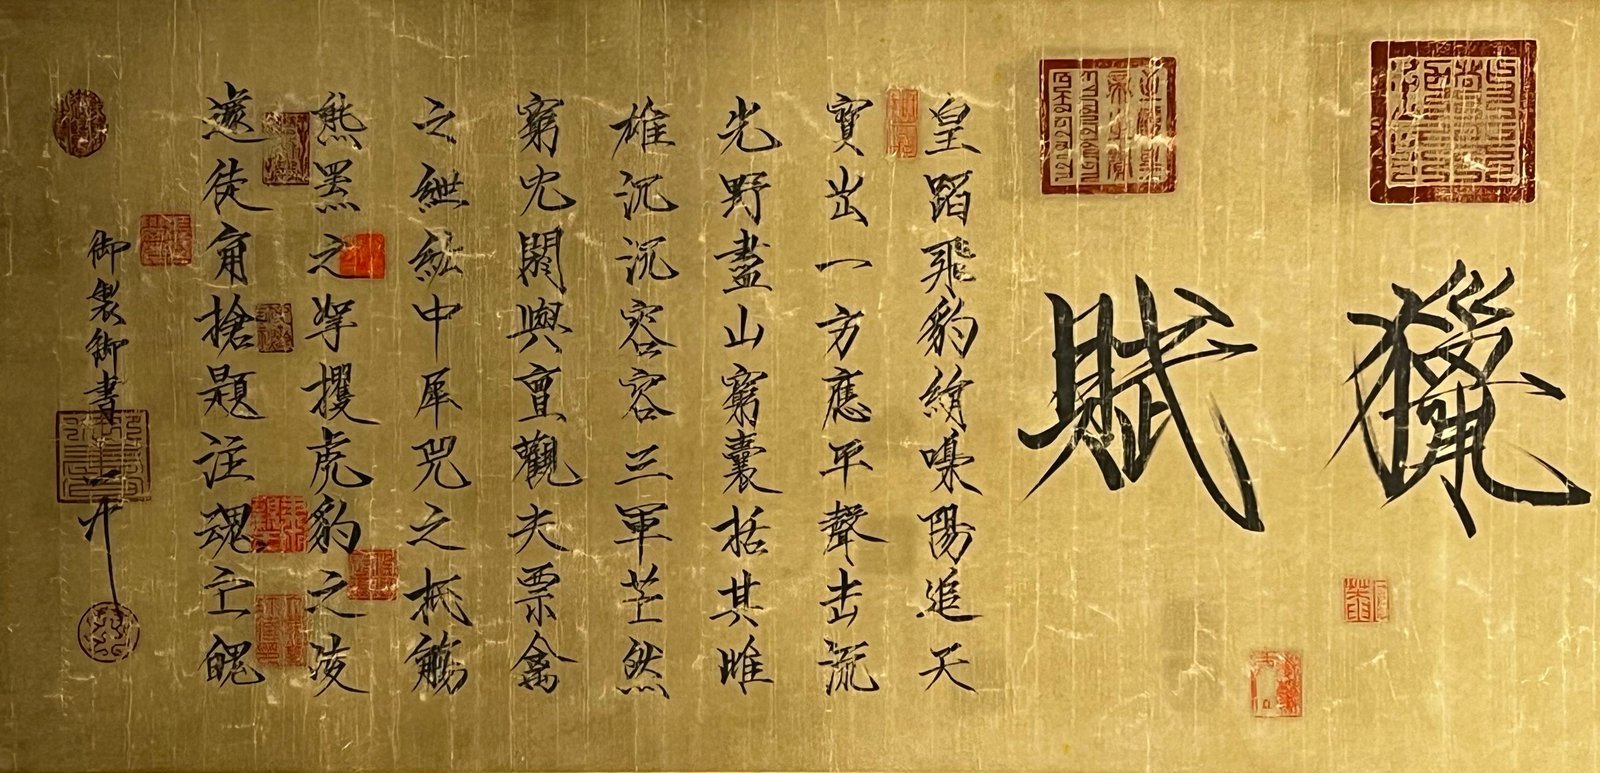 獵賦
皇蹈飛豹絹嘄陽追天
寶出一方應平聲击流
光野盡山窮囊括其雌
雄沉沉容容三軍芒然
窮冘閼與亶觀夫票禽
之紲紘中犀兕之抵觸
熊羆之挐攫虎豹之凌
遽徒角搶題注魂亡魄
御製御書